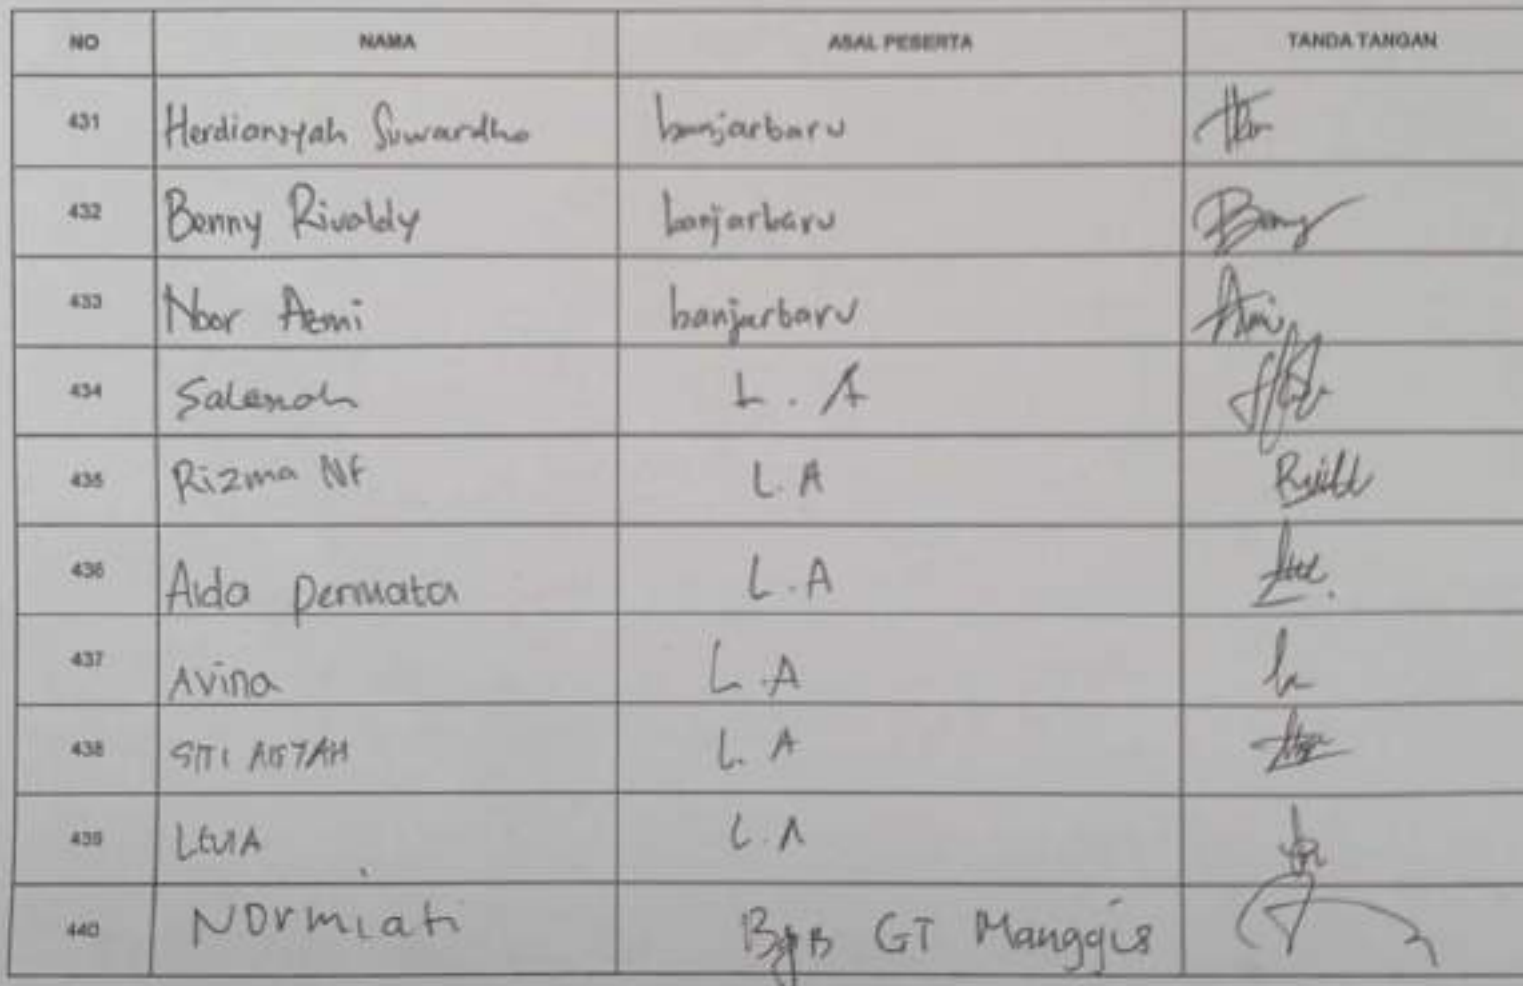 NO NAMA ASAL PESERTA TANDA TANGAN
431 Herdiansyah Suwardho banjarbaru
432 Benny Rivaldy banjarbaru Benny
433 Noor Azmi banjarbaru
434 L. A
435 Rizma NF L. A
436 Aida Permata L. A
437 Avina L. A
438 SITI AISYAH L. A
439 L. A
440 Normiati GT Manggis